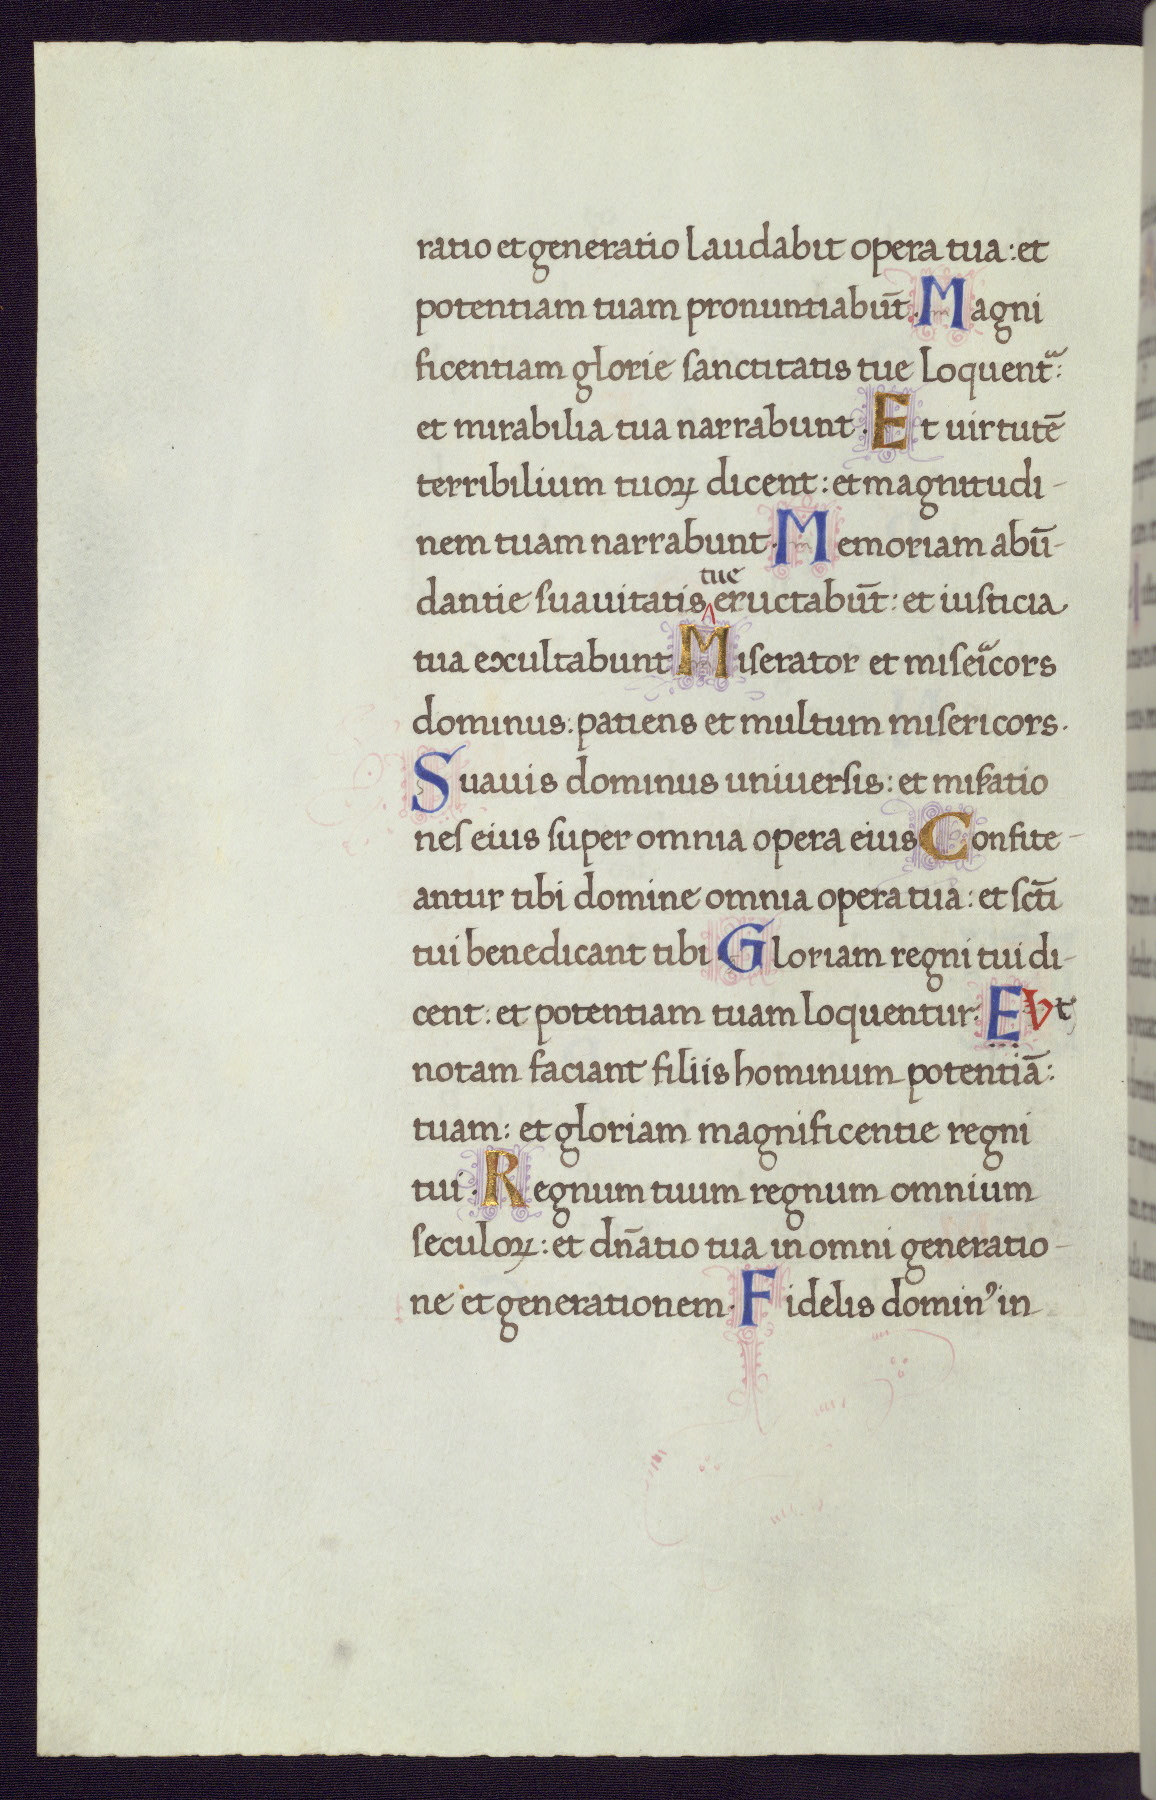 ratio et generatio laudabit opera tua: et
potentiam tuam pronuntiabūt. Magni
ficentiam glorie sanctitatis tue loquentᵃ:
et mirabilia tua narrabunt. Et uirtutē
terribilium tuoꝝ dicent: et magnitudi-
nem tuam narrabunt. Memoriam abū-
tue
dantie suauitatis‸eructabūt: et iusticia
tua exultabunt Miserator et miseicors
dominus. patiens et multum misericors.
Suauis dominus uniuersis: et miẜatio
nes eius super omnia opera eius Confite-
antur tibi domine omnia opera tua: et sc̄ti
tui benedicant tibi Gloriam regni tui di-
cent: et potentiam tuam loquentur. E Vt
notam faciant filiis hominum potentiā:
tuam: et gloriam magnificentie regni
tui. Regnum tuum regnum omnium
seculoꝝ: et dn̄atio tua in omni generatio-
ne et generationem. Fidelis dominꝰ in